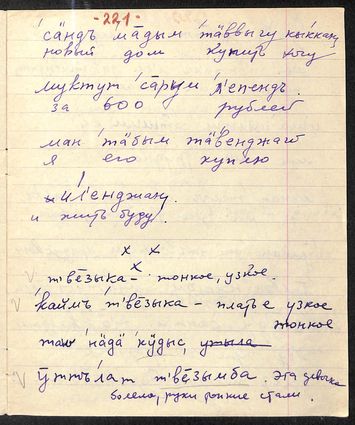 -221-
са̄ндъ ма̄дым таввыгу кыккаӈ
новый дом купить хочу
муктут са̄рум л'епендъ.
за 600 рублей
ман та̄бым та̄венджаӈ
я его куплю
и́л'енджаӈ.
и жить буду.
х х
х
тве̄зыка – тонкое, узкое.
каймъ тве̄зыка – платье узкое
тонкое
на̄дӓ кӯдыс,
ӯттъла̄т тве̄зымба. эта девочка
болела, руки тонкие стали.